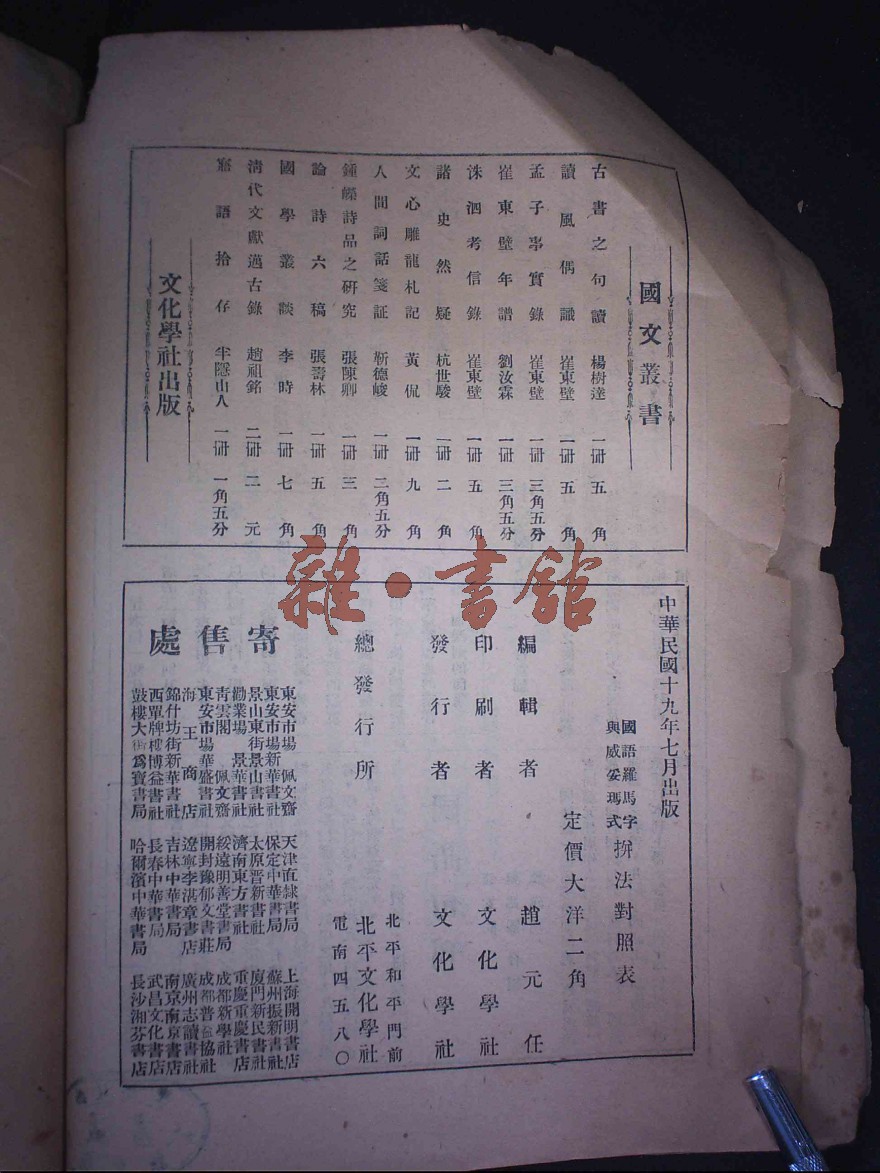 國文叢書
古書之句讀 楊樹達 一冊 五角
讀風偶識 崔東壁 一冊 五角
孟子事實錄 崔東壁 一冊 三角五分
崔東壁年譜 劉汝霖 一冊 三角五分
洙泗考信錄 崔東壁 一冊 五角
諸史然疑 杭世駿 一冊 二角
文心雕龍札記 黃侃 一冊 九角
人間詞話箋証 靳德峻 一冊 二角五分
鍾嶸詩品之研究 張陳卿 一冊 三角
論詩六稿 張壽林 一冊 五角
國學叢談 李時 一冊 七角
清代文獻邁古錄 趙祖銘 二冊 二元
寤語拾存 半隱山人 一冊 一角五分
文化學社出版
雜·書館
中華民國十九年七月出版
國語羅馬字與威妥瑪式拼法對照表
定價大洋二角
編輯者 趙元任
印刷者 文化學社
發行者 文化學社
總發行所
北平和平門前
北平文化學社
電南四五八〇
寄售處
東安市場 佩文齋 天津直隸書局 上海開明書店
東安市場新華書社 保定中華書局 蘇州振新書社
景山東街景山書社 太原晋新書社 廈門新民書社
勸業場 景華書社 濟南東方書社 重慶重慶書店
青雲閣 佩文齋 綏遠明善堂書局 成都新學社
東安市場華盛書社 開封豫郁文書莊 成都普益協社
海王商店 遼寧李湛章書店 廣州志讀書社
錦什坊街新華書社 吉林中華書局 南京南京書店
西單牌樓博益書社 長春中華書局 武昌文化書店
鼓樓大街爲寶書局 哈爾濱中華書局 長沙湘芬書店